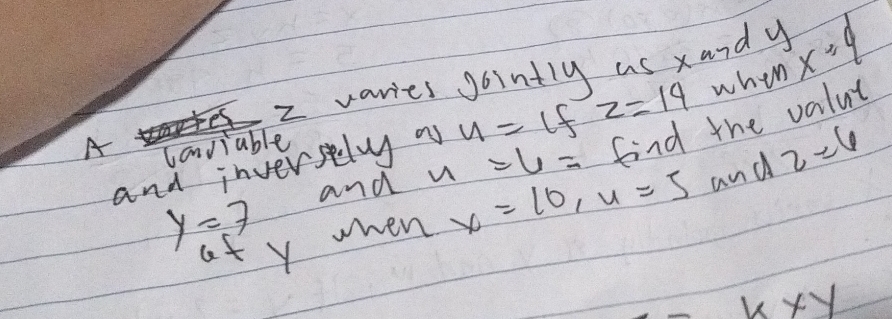 A variable z varies jointly as x and y
and inversely as u = if z = 14 when x = 9
y = 7 and u = 6 = find the value
of y when x = 10, u = 5 and z = 6
= kxy